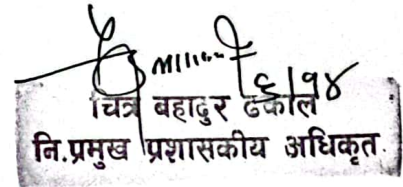 ६/१४
चित्र बहादुर ढकाल
नि.प्रमुख प्रशासकीय अधिकृत